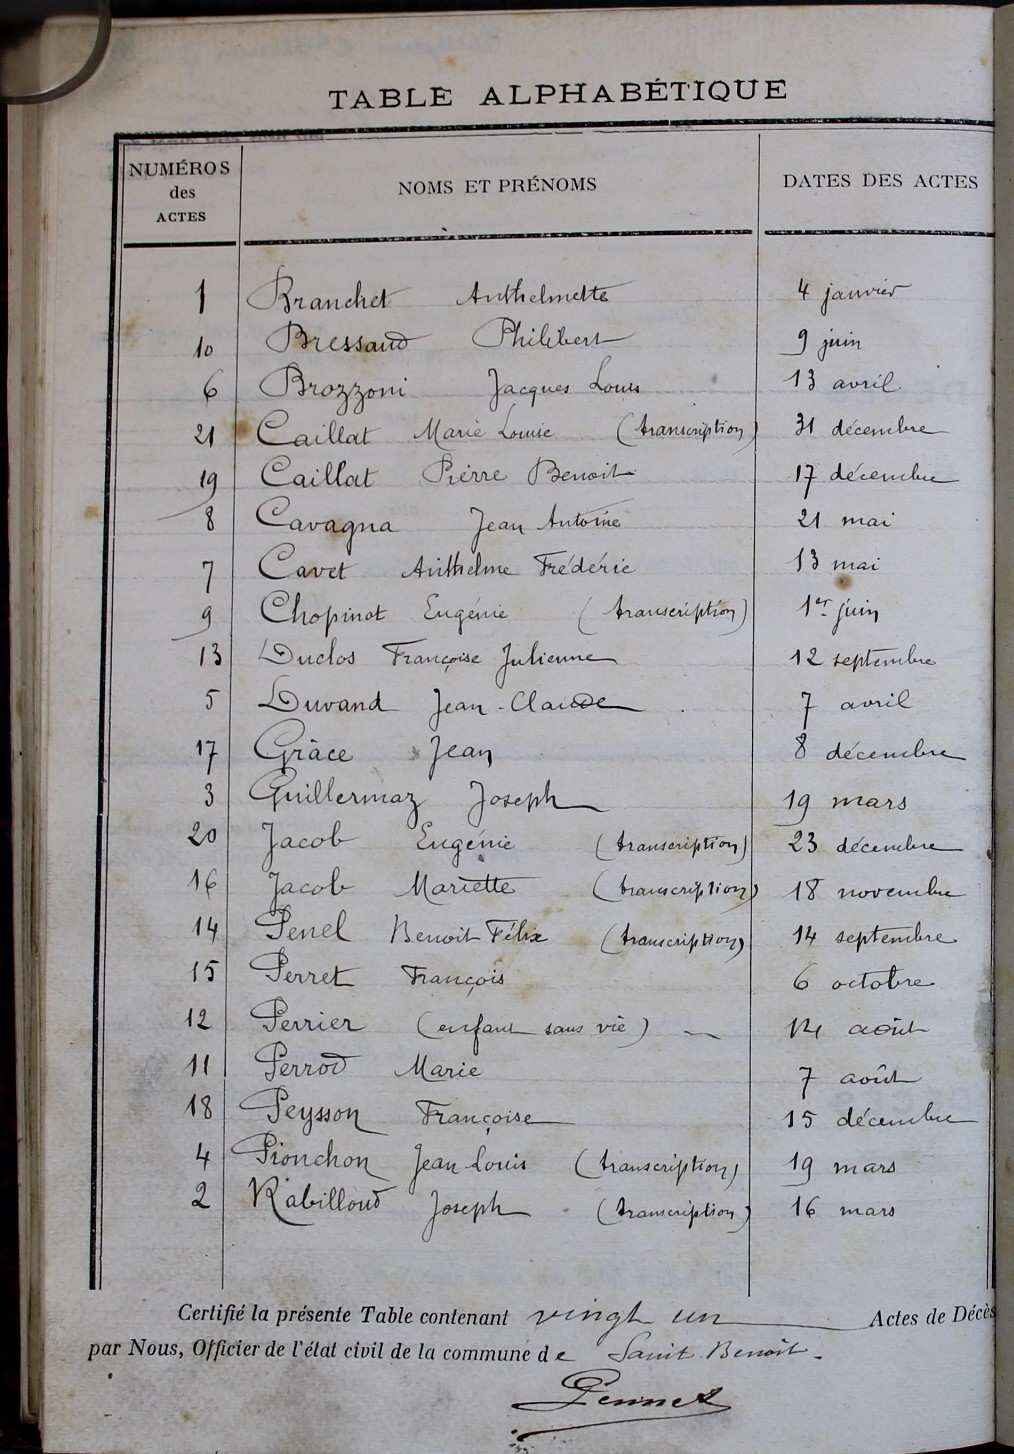 TABLE ALPHABÉTIQUE
NUMÉROS des ACTES NOMS ET PRÉNOMS DATES DES ACTES
1 Branchet Anthelmette 4 janvier
10 Bressand Philibert 9 juin
6 Brozzoni Jacques Louis 13 avril
21 Caillat Marie Louise (transcription) 31 décembre
19 Caillat Pierre Benoit 17 décembre
8 Cavagna Jean Antoine 21 mai
7 Cavet Anthelme Frédéric 13 mai
9 Chopinot Eugénie (transcription) 1er juin
13 Duclos Françoise Julienne 12 septembre
5 Duvand Jean-Claude 7 avril
17 Grâce Jean 8 décembre
3 Guillermaz Joseph 19 mars
20 Jacob Eugénie (transcription) 23 décembre
16 Jacob Mariette (transcription) 18 novembre
14 Penel Benoit Félix (transcription) 14 septembre
15 Perret François 6 octobre
12 Perrier (enfant sans vie) 14 août
11 Perrod Marie 7 août
18 Peysson Françoise 15 décembre
4 Pionchon Jean Louis (transcription) 19 mars
2 Rabilloud Joseph (transcription) 16 mars
Certifié la présente Table contenant vingt un Actes de Décès
par Nous, Officier de l'état civil de la commune de Saint-Benoît.